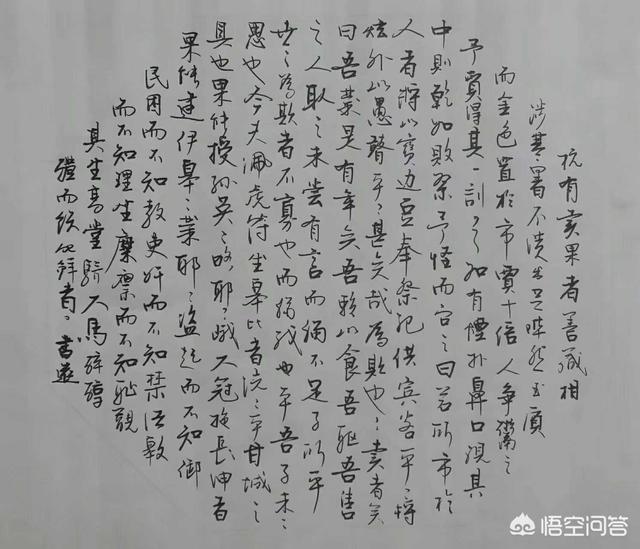 杭有卖果者善藏相
涉寒暑不溃出之烨然玉质
而金色置於市賈十倍人争鬻之
予賈得其一剖之如有煙扑鼻口视其
中则乾如败絮予怪而问之曰若所市於
人者将以实边豆奉祭祀供宾客乎将
炫外以愚瞽乎甚矣哉為欺也卖者笑
曰吾業是有年矣吾赖以食吾躯吾售
之人取之未尝有言而独不足子所乎
世之為欺者不寡也而独我也乎吾子未之
思也今夫佩虎符坐皋比者洸洸乎干城之
具也果能授孙吴之略耶峨大冠拖长绅者
果能建伊皋之業耶盗起而不知御
民困而不知救吏奸而不知禁法斁
而不知理坐糜廪而不知耻觀
其坐高堂骑大馬醉醇
醴而饫肥鲜者書
悟空问答